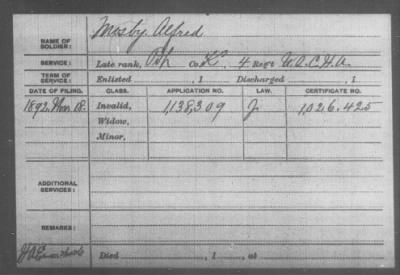 NAME OF SOLDIER: Mosby, Alfred
SERVICE: Late rank, Pvt Co. K, 4 Reg't U.S.C.H.A.
TERM OF SERVICE: Enlisted , 1 Discharged , 1
DATE OF FILING. CLASS. APPLICATION NO. LAW. CERTIFICATE NO.
1892, 18. Invalid, 1,138,309 J. 1,026,425
Widow,
Minor,
ADDITIONAL SERVICES:
REMARKS:
Died , 1 , at